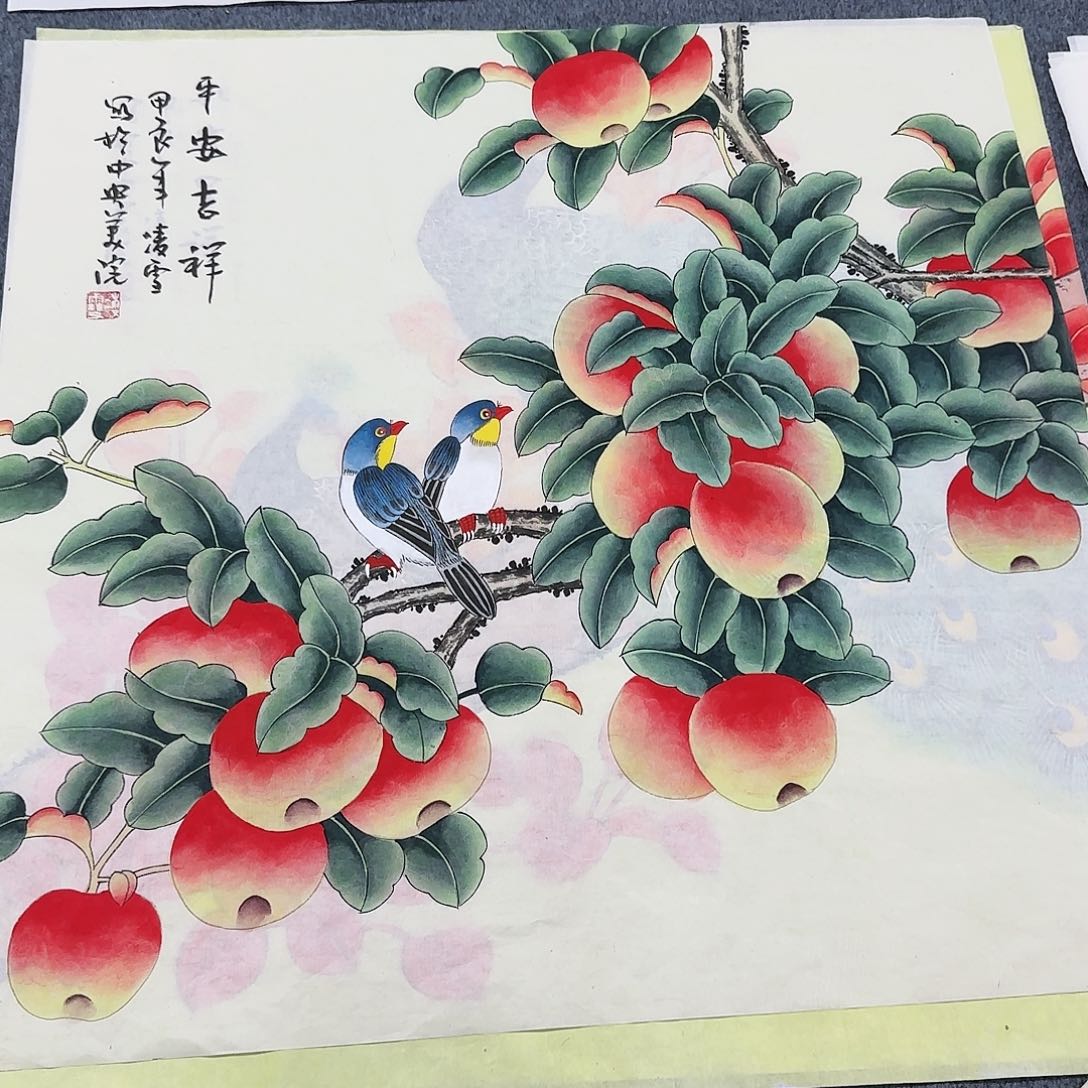 平安吉祥
甲辰年凌雪
写于中央美院